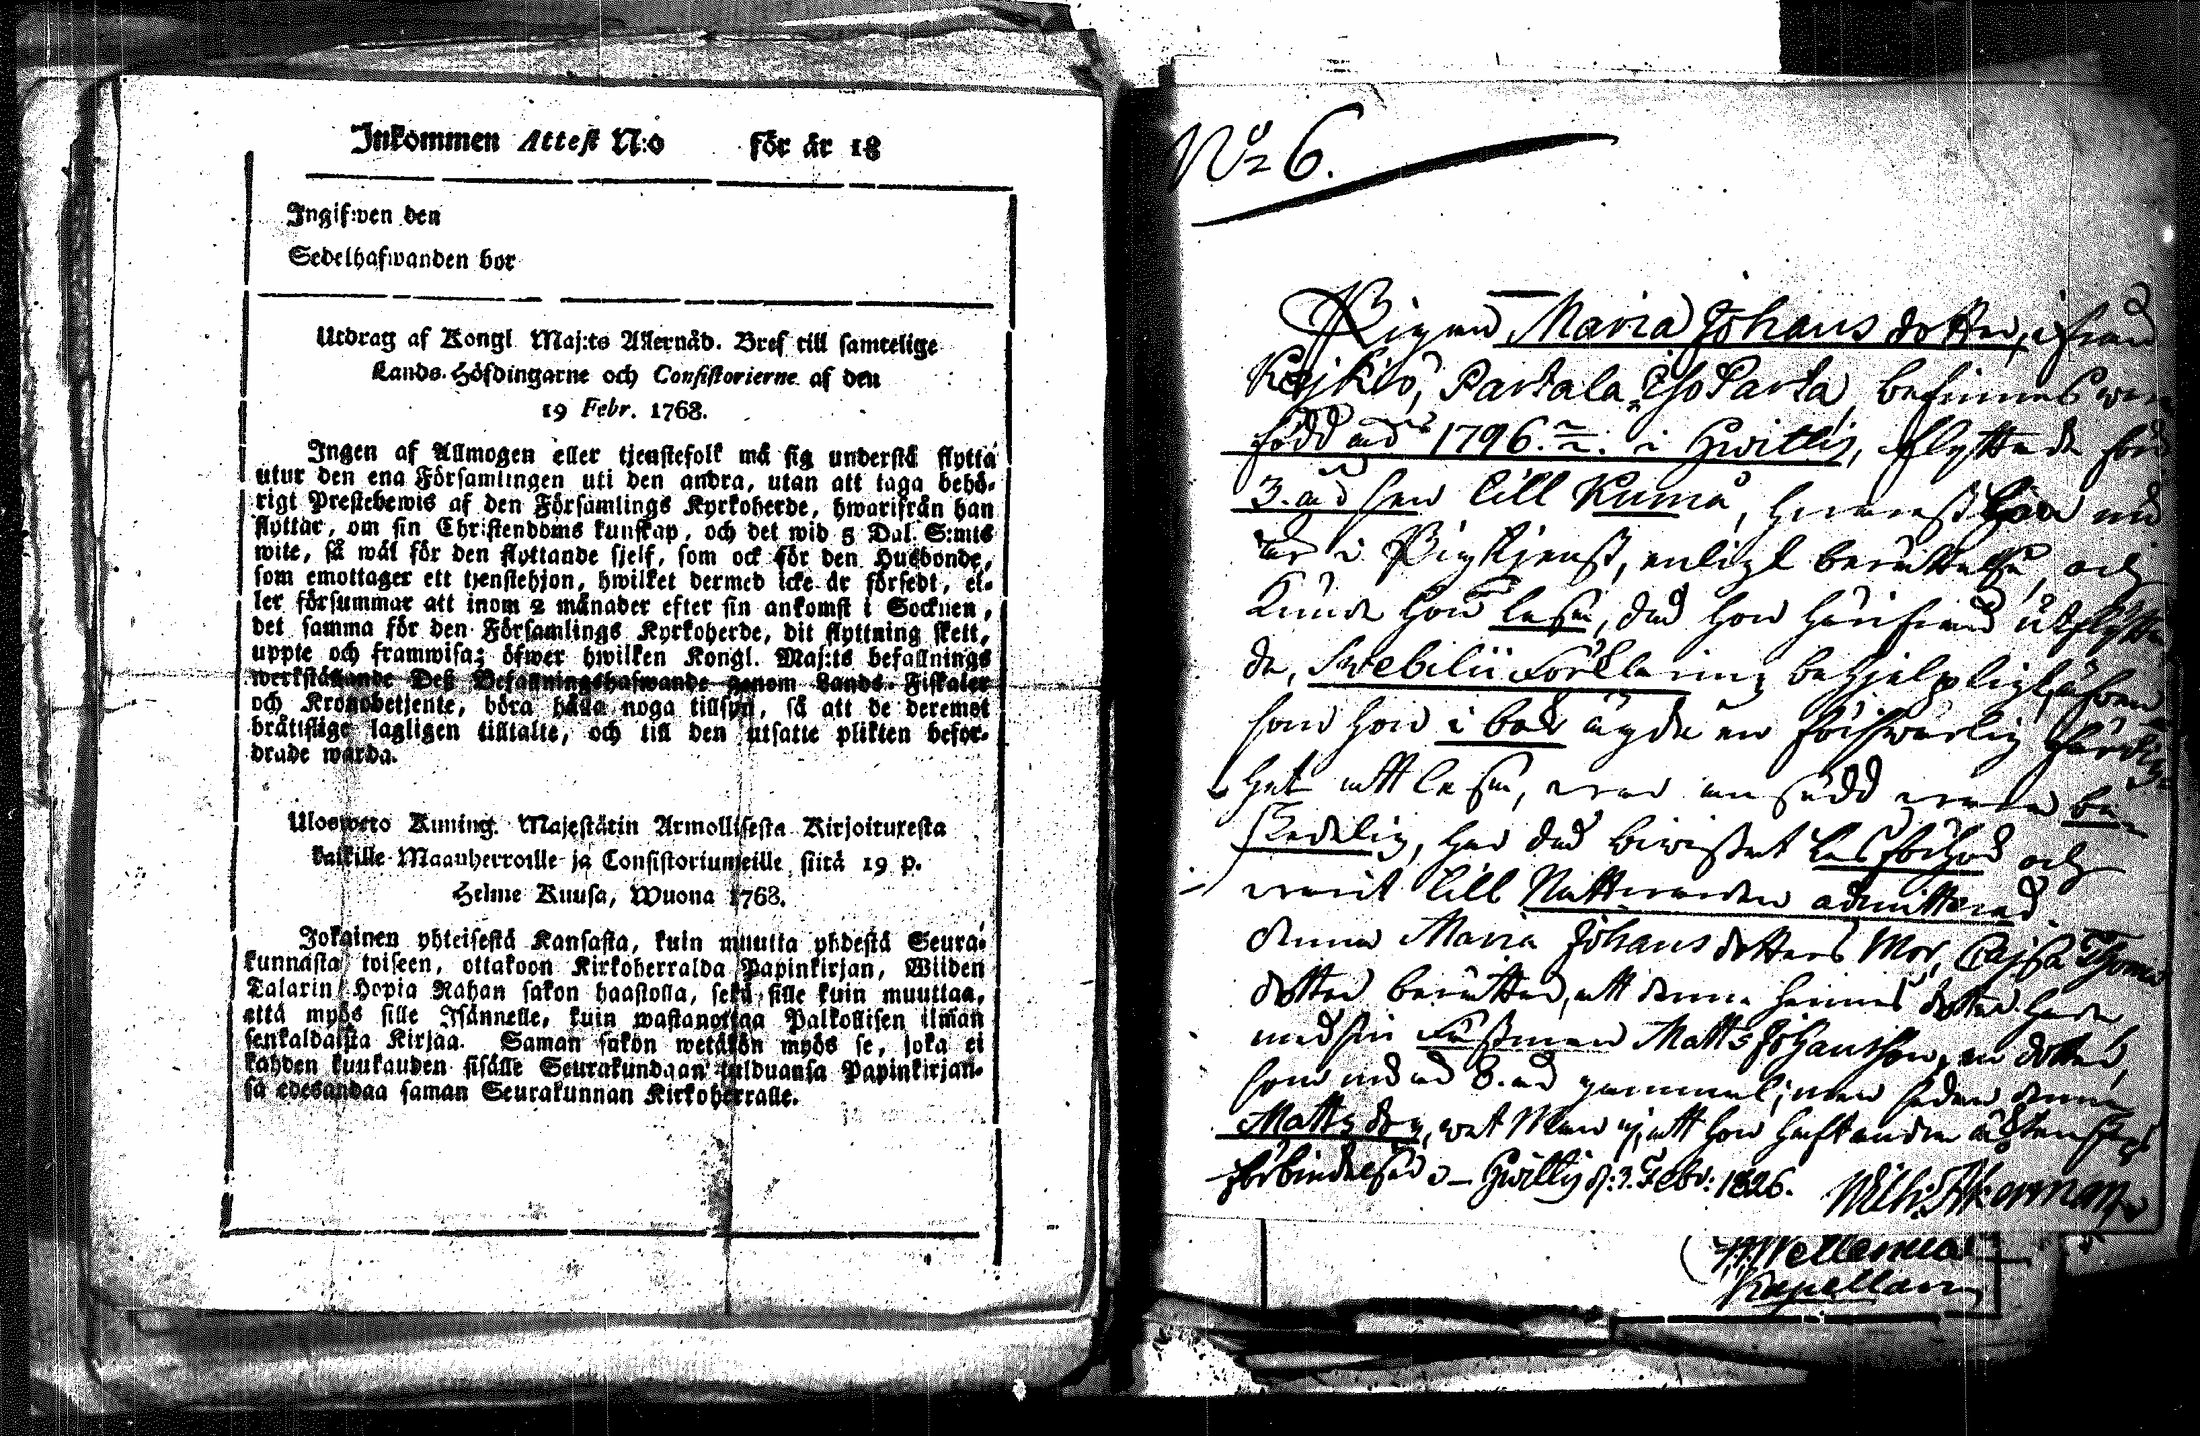 Inkommen Attest N:o för år 18
Ingifwen den
Sedelhafwanden bor
Utdrag af Kongl Maj:ts Allernåd. Bref till samtelige
Lands-Höfdingarne och Consistorierne af den
19 Febr. 1768.
Ingen af Allmogen eller tjenstefolk må sig understå flytta
utur den ena Församlingen uti den andra, utan att taga behö-
rigt Prestebewis af den Församlings Kyrkoherde, hwarifrån han
flyttar, om sin Christendoms kunskap, och det wid 5 Dal. S:mts
wite, så wäl för den flyttande sjelf, som ock för den Husbonde,
som emottager ett tjenstehjon, hwilket dermed icke är försedt, el-
ler försummar att inom 2 månader efter sin ankomst i Socknen,
det samma för den Församlings Kyrkoherde, dit flyttning skett,
uppte och framwisa; öfwer hwilken Kongl. Maj:ts befallnings
werkställande Deß Befallningshafwande genom Lands-Fiskaler
och Kronobetjente, böra hålla noga tillsyn, så att de deremot
brätislige lagligen tilltalte, och till den utsatte plikten befor-
drade warda.
Uloswето Kuning. Majestätin Armollisesta Kirjoituxesta
kaikille Maanherroille ja Consistoriumeille, siitä 19 p.
Helme Kuusa, Wuona 1768.
Jokainen yhteisestä Kansasta, kuin muutta yhdestä Seura-
kunnasta toiseen, ottakoon Kirkoherralda Papinkirjan, Wiiden
Talarin Hopia Rahan sakon haastolla, sekä sille kuin muuttaa,
että myös sille Isännelle, kuin wastanottaa Palkollisen ilman
senkaldaista Kirjaa. Saman sakon wetäkön myös se, joka ei
kahden kuukauden sisälle Seurakundaan tulduansa Papinkirjan-
sa edesandaa saman Seurakunnan Kirkoherralle.
No 6.
Pigan Maria Johans dotter, ifrån
Kejkiö, Partala Iso Parta, befinnes
född år 1796. i Hwittis, flyttade för
3. år sen till Kumå, hwarest hon
i Pigtjenst, enligt berättelse, och
Kunde hon läsa, då hon härifrån utflytta
de, Svebilii Förklaring behjelpligt, äfven
som hon i bok ägde en försvarlig färdig-
het att läsa, var ansedd vara be-
skedelig, har då biwistat Läsförhör och
varit till Nattvarden admitterad.
Denna Maria Johans dotters Mor, Cajsa Thomas
dotter berättar, att denna hennes dotter hade
med sin Fästman Matts Johansson, en dotter,
som nu är 8. år gammal; men sedan denna
Matts dog, wet Man ej, att hon haft andra äktenskaps
förbindelser. Hwittis d. 3. Febr: 1826. Wilh: Åkerman
Kapellan